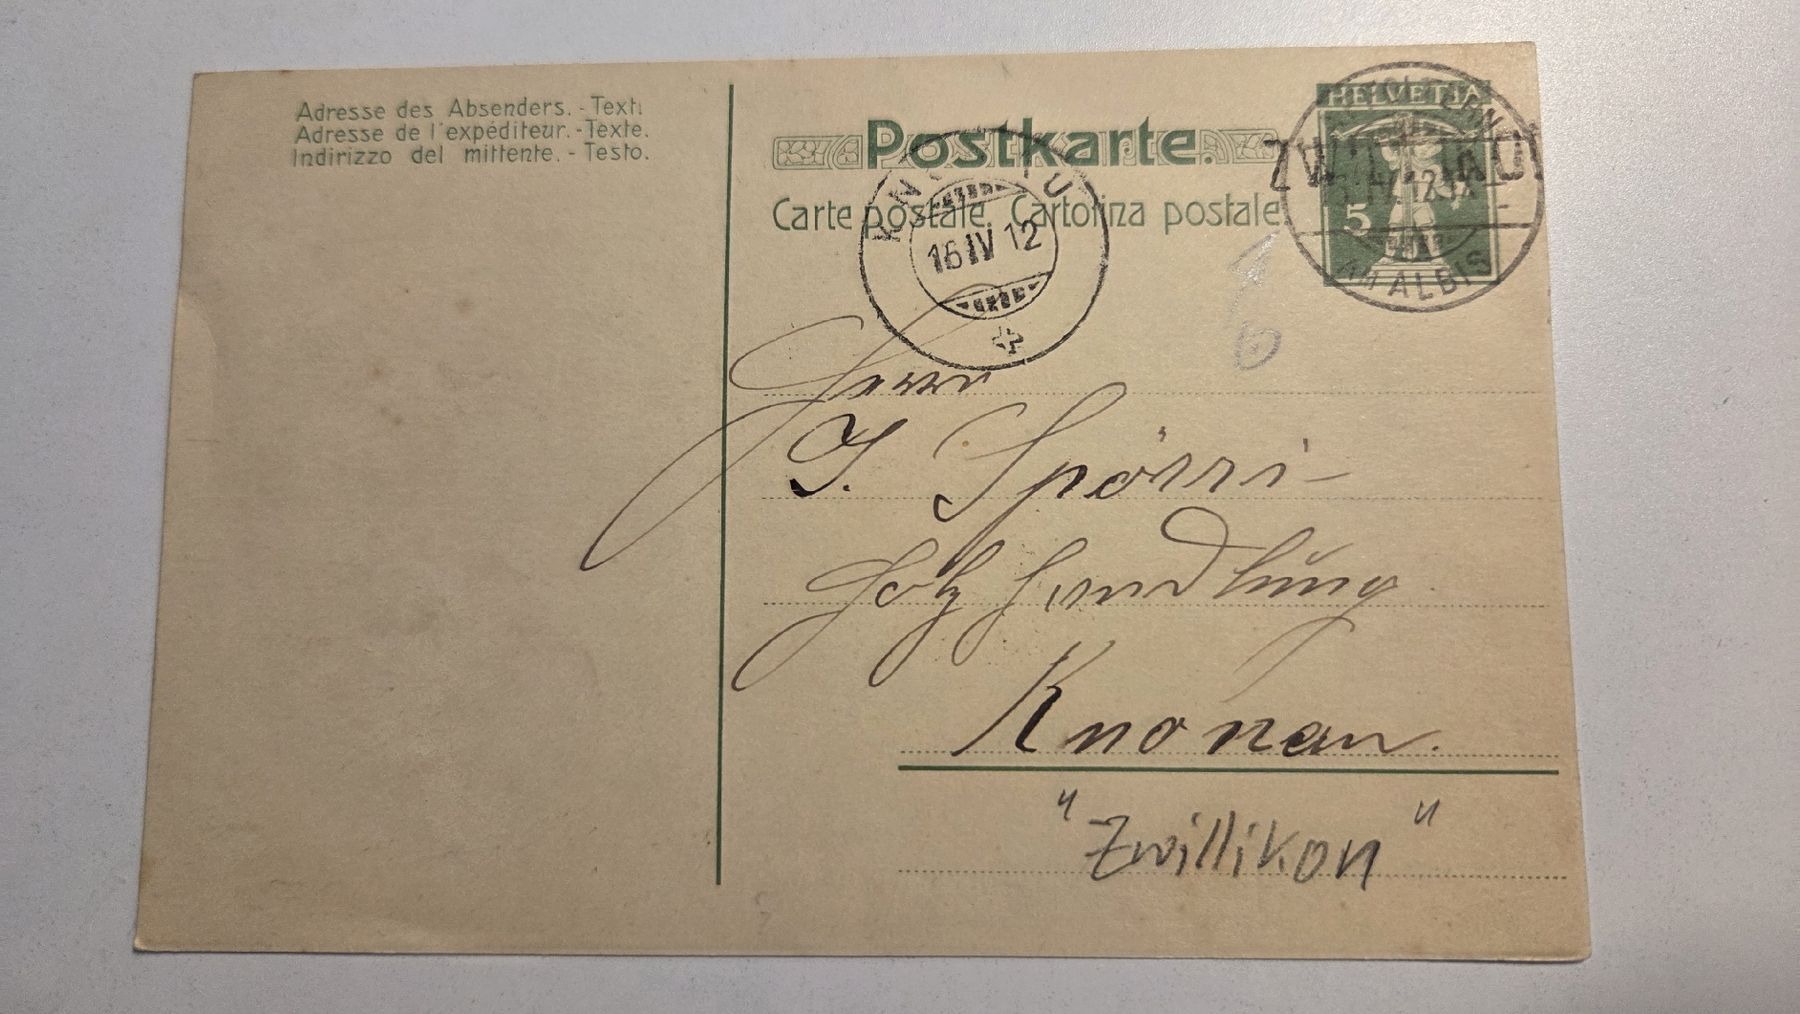 Adresse des Absenders. - Text.
Adresse de l'expéditeur. - Texte.
Indirizzo del mittente. - Testo.
Postkarte.
Carte postale. Cartolina postale.
HELVETIA
5
AM ALBIS
KNONAU
16 IV 12
Herrn
J. Spörri -
Holzhandlung
Knonau.
"Zwillikon"